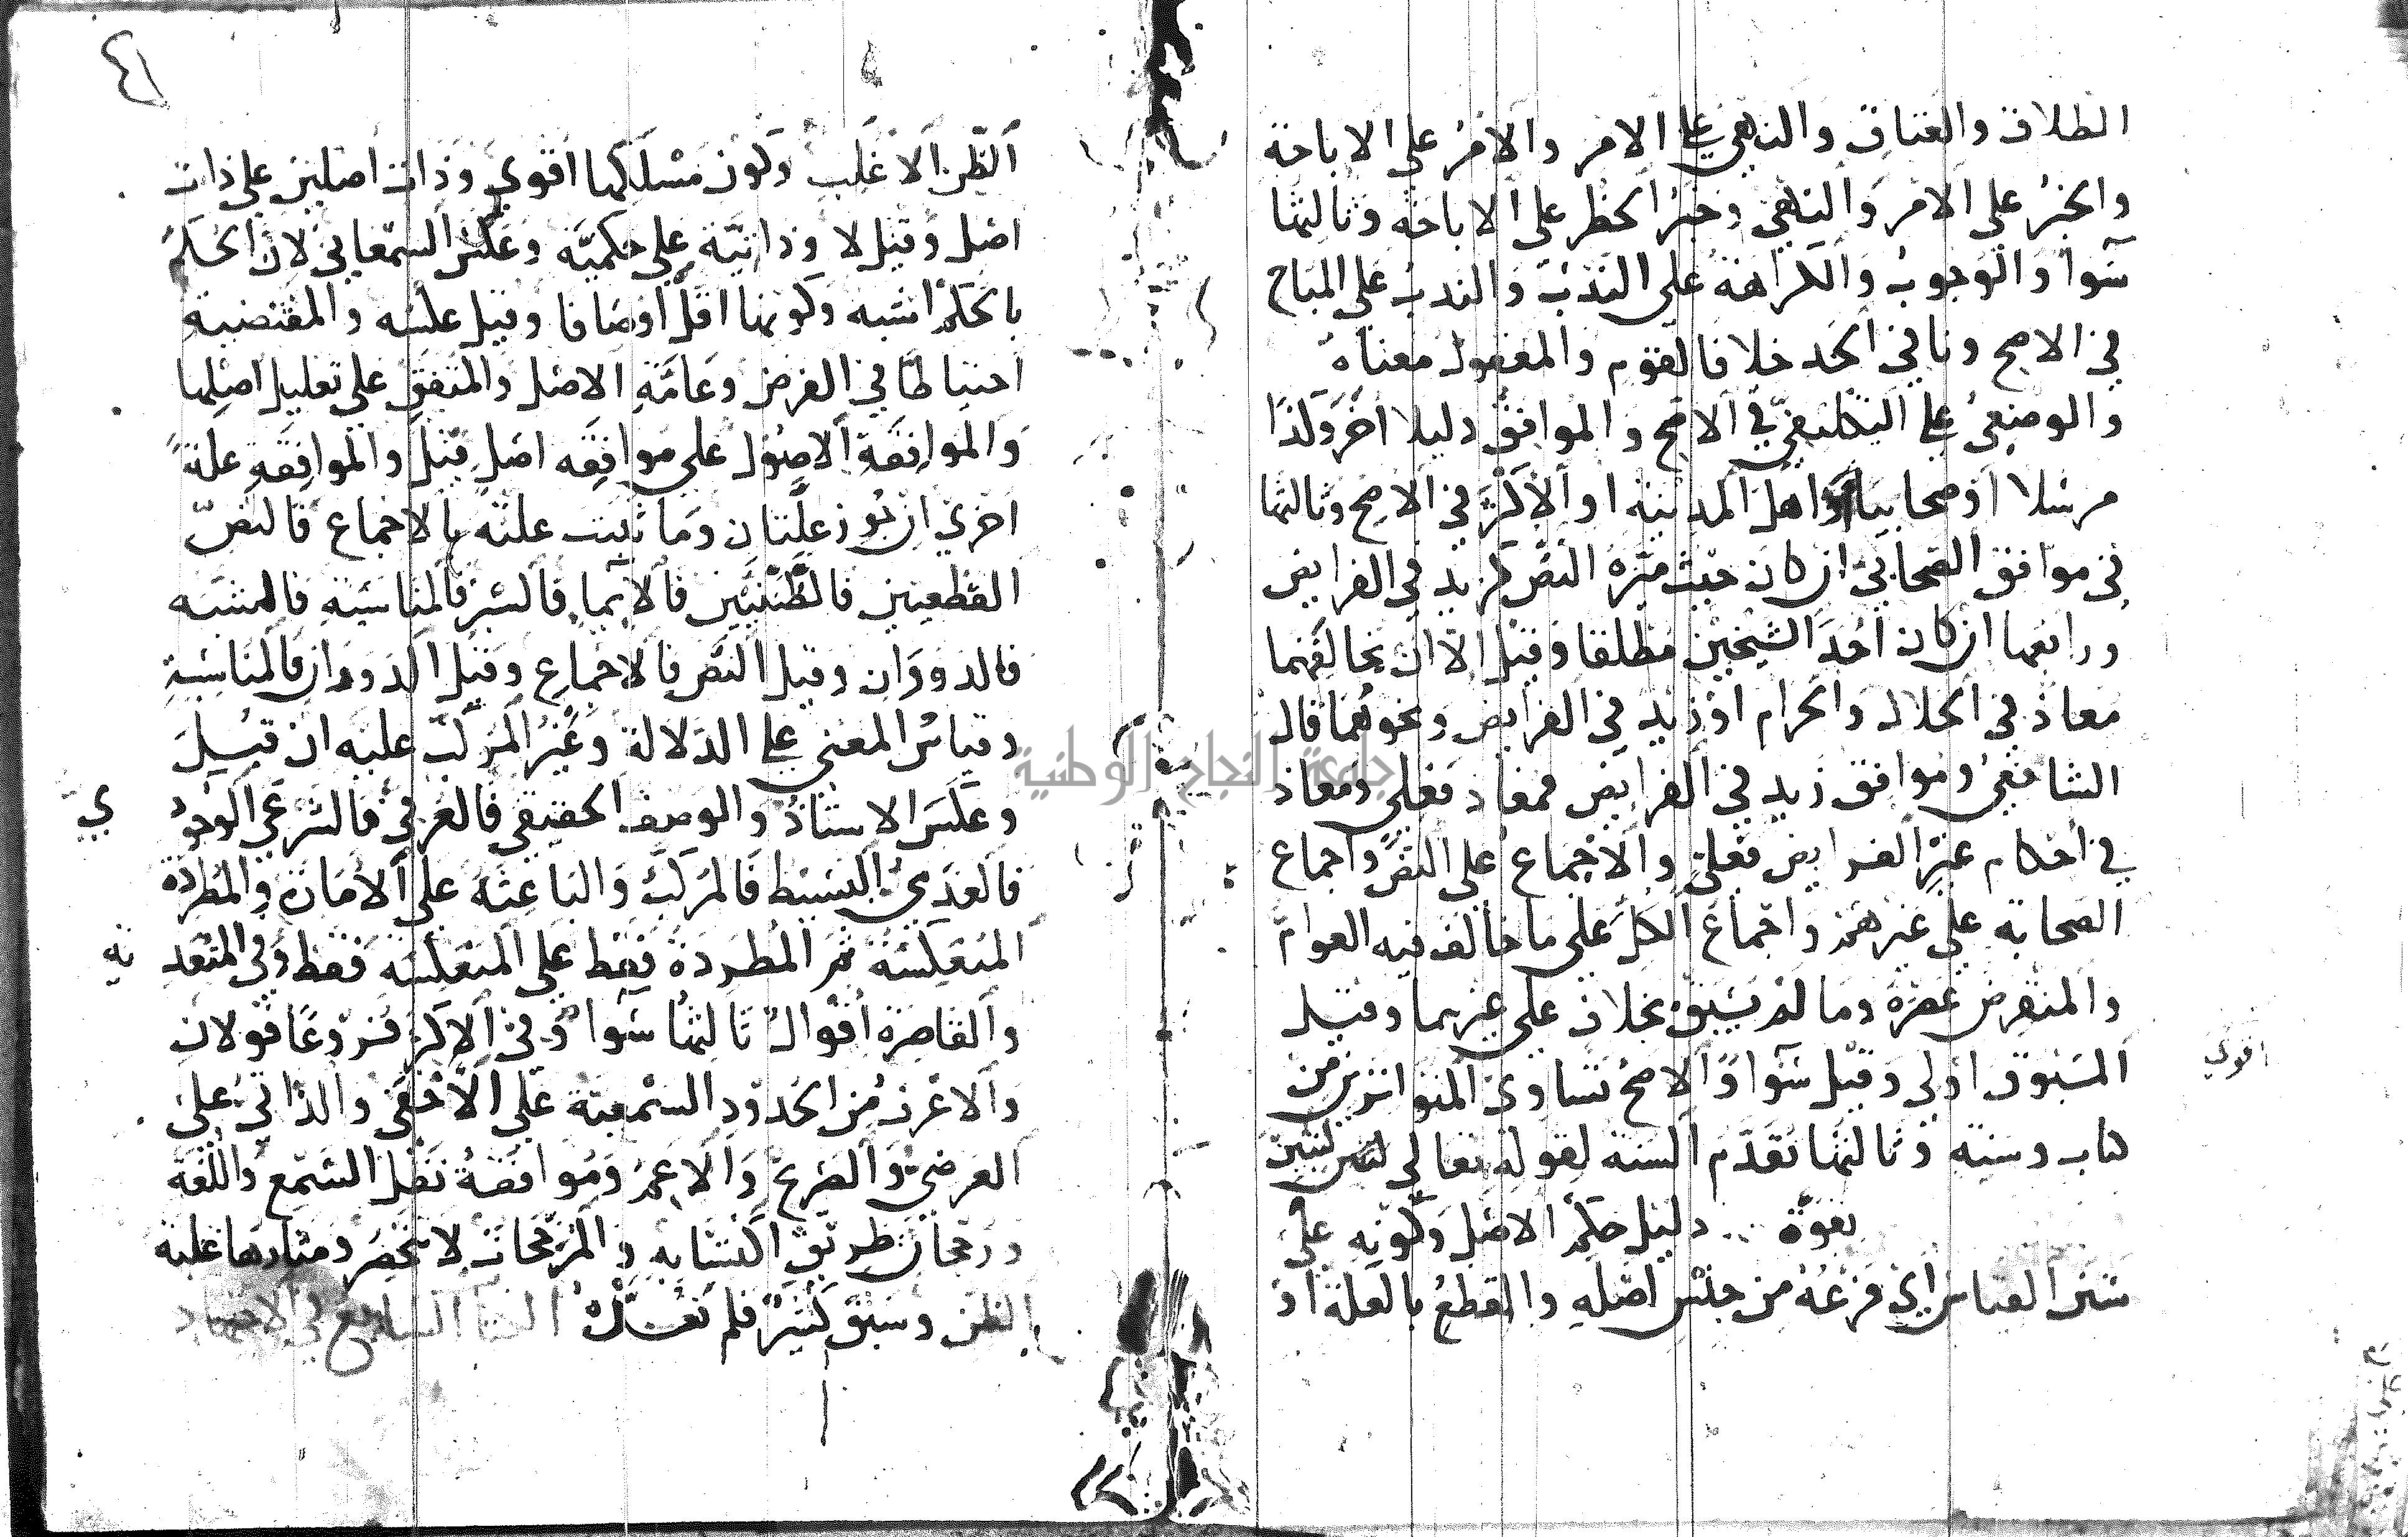 الطلاق والعتاق والنهي على الامر والامر على الاباحة
والخبرُ على الامر والنهي وخبرُ الحظر على الاباحة وثالثها
سَوآ والوجوب والكراهة على الندب والندب على المباح
في الاصح ونافي الحد خلافا لقوم والمعقول معناه
والوضعيُ على التكليفيّ في الاصح والموافق دليلا اخَر وكَذا
مرسلا اوْ صحابيا او اهل المدينة او الاكثر في الاصح وثالثها
في موافق الصحابيّ ان كان حيث ميّزهُ النص كزيد في الفرايض
ورابعها ان كان احَدَ الشيخين مطلقا وقيل الا ان يخالفهما
معاذ في الحلال والحرام اوْ زيد في الفرايض ونحوُهما قال
الشافعيُ وموافق زيد في الفرايض فمعاذ فعلي ومعاذ
في احكام غير الفرايض فعلي والاجماعُ على النص واجماع
الصحابة على غيرهم واجماعُ الكل على ما خالف فيه العوام
والمنقرض عصره وما لم يُسْبَق بخلاف على غيرهما وقيل
المسبوق اولى وقيل سَوآ والاصحُ تساوي المتواترين من
كتاب وسنة وثالثها تقدّم السنة لقوله تعالى لتبين
بقوة دليل حكم الاصل وكونِه على
سَنن القياس اي فرعُهُ من جنس اصله والقطعُ بالعلة اوْ
اقوى
٤١
الظن الاغلب وكون مَسْلكها اقوى وذات اصلين على ذات
اصل وقيل لا وذاتيّة على حكميّة وعكَسَ السمعاني لان الحكم
بالحكم اشبه وكونها اقل اوصافا وقيل عكسه والمقتضية
احتياطا في الفرض وعامّة الاصل والمتفَق على تعليل اصلها
والموافقة الاصُول على موافقة اصل قيل والموافِقة علة
اخرى ان جُوز علّتان وما ثبت علته بالاجماع فالنصّ
القطعيين فالظنيّين فالايما فالسبر فالمناسَبة فالشبه
فالدوران وقيل النص فالاجماع وقيل الدوران فالمناسبة
وقياسُ المعنى على الدلالة وغيرُ المركّب عليه ان قبِلَ
وعكَسَ الاستاذُ والوصف الحقيقي فالعرفيّ فالشرعي الوجود
ي
فالعَدمي البسيط فالمركّبُ والباعثة على الامارة والمطردة
المنعكسة ثم المُطردة فقط على المنعكسة فقط وفي المتعد
ية
والقاصرة اقوالٌ ثالثها سَوآ وفي الاكثر فروعًا قولان
والاعرف من الحدود السمعية على الاخفى والذاتيُ على
العرضي والصَريح والاعم وموافقةُ نقل السَمع واللغة
ورجحان طريق اكتسابه والمُرجّحات لا تنحصر ومثارها غلبة
الظن وسبَق كثيرٌ فلم نُعِدْه الكتاب السابع في الاجتهاد
جامعة النجاح الوطنية